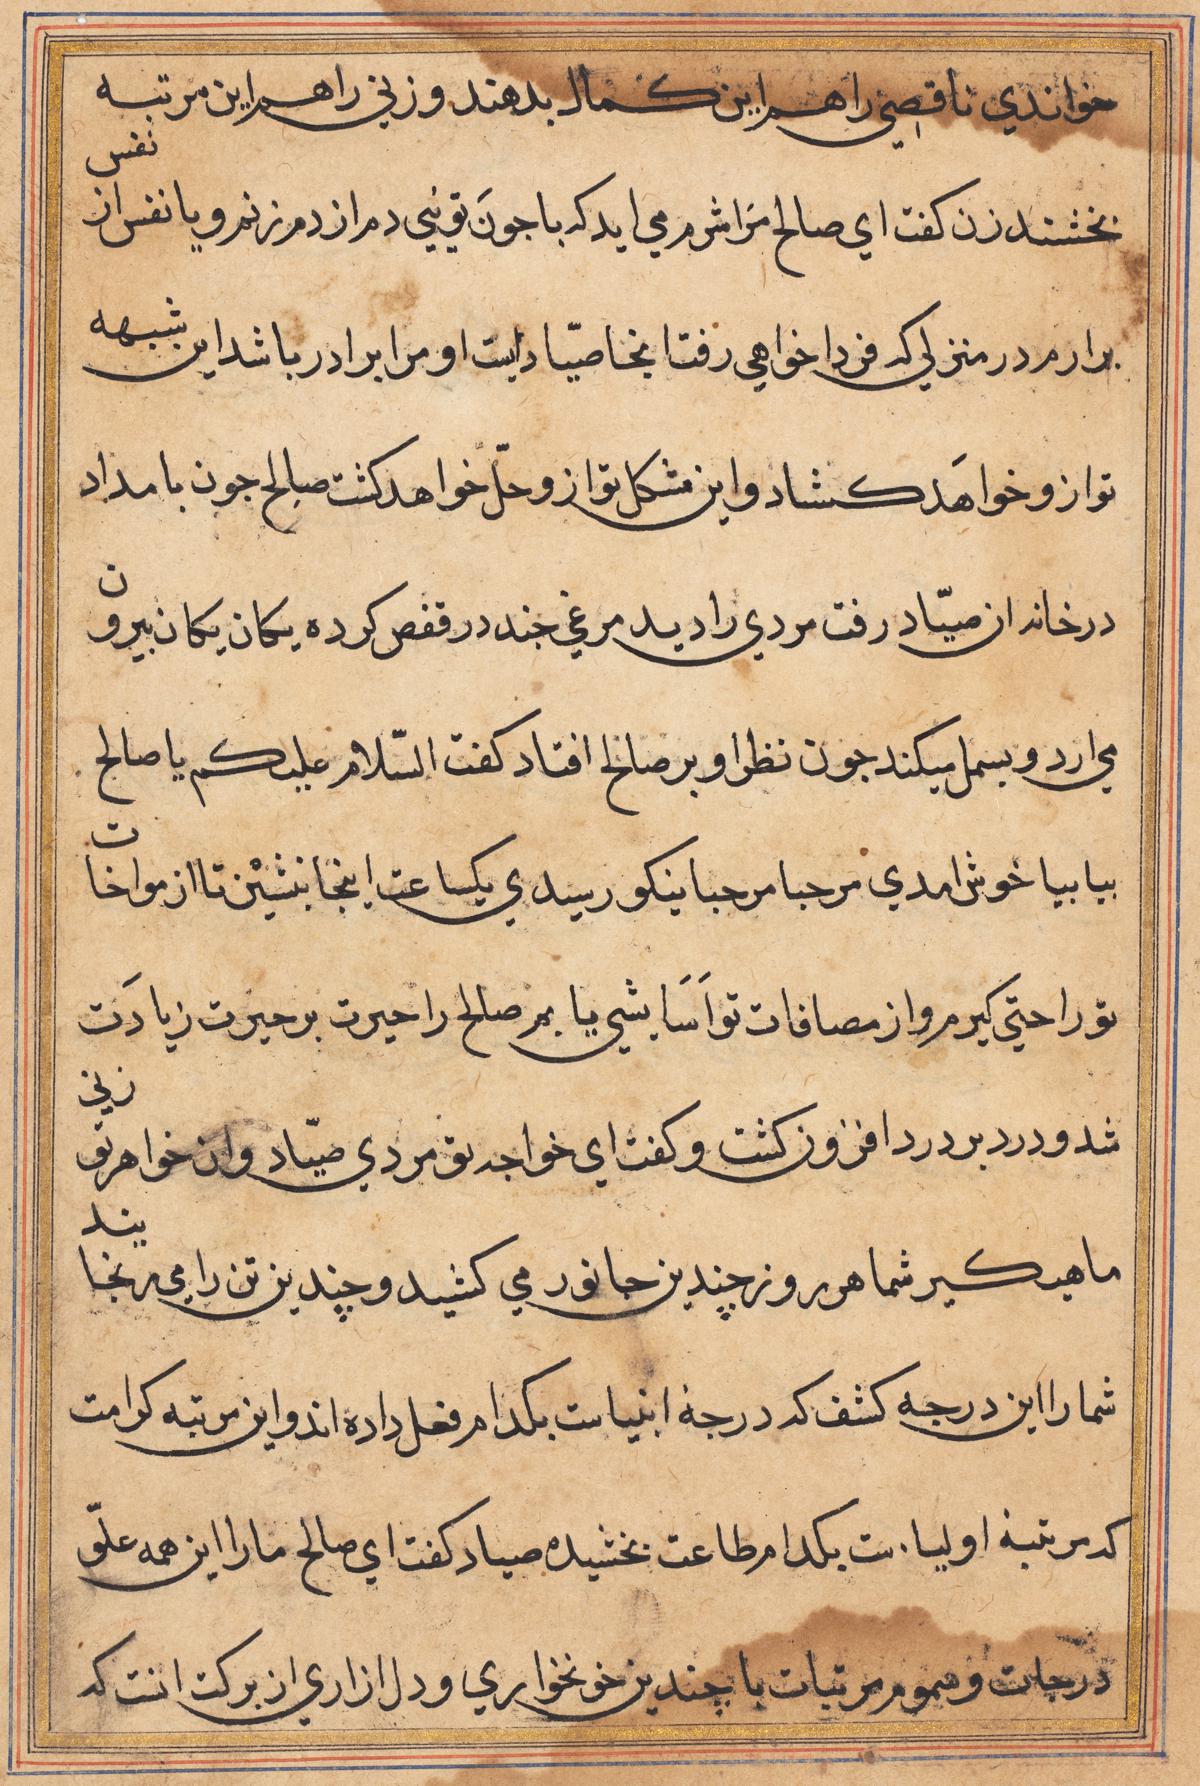 خواندي ناقصي را هم اين كمال بدهند و زني را هم اين مرتبه
بخشند زن كفت اي صالح مرا شرم مي ايد كه با جون تويي دم از دم زنم و يا نفس از نفس
برارم در منزلي كه فردا خواهي رفت انجا صيّاديست او مرا برادر باشد اين شبهه
تو از و خواهَد كشاد و اين مشكل تو از و حلّ خواهد كشت صالح جون بامداد
در خانه ان صيّاد رفت مردي را ديد مرغي جند در قفص كرده يكان يكان بيرون
مي ارد و بسمل ميكند جون نظر او بر صالح افتاد كفت السّلام عليكم يا صالح
بيا بيا خوش امدي مرحبا مرحبا نيكو رسيدي يكساعت اينجا بنشين تا از مواخات
تو راحتي كيرم و از مصافات تو اَسَايشي يابم صالح را حيرت بر حيرت زيادَت
شد و درد بر درد افزون كشت و كفت اي خواجه تو مردي صيّاد و ان خواهر تو زني
ماهي كير شما هر روز چندين جانور مي كشيد و چندين تن را مي رنجانيد
شما را اين درجه كشف كه درجهٔ انبياست بكدام فعل داده اند و اين مرتبه كرامت
كه مرتبهٔ اولياست بكدام طاعت بخشيده صياد كفت اي صالح ما را اين همه علّو
درجات و سمو مرتبات با چندين خونخواري و دل ازاري از بركت انست كه